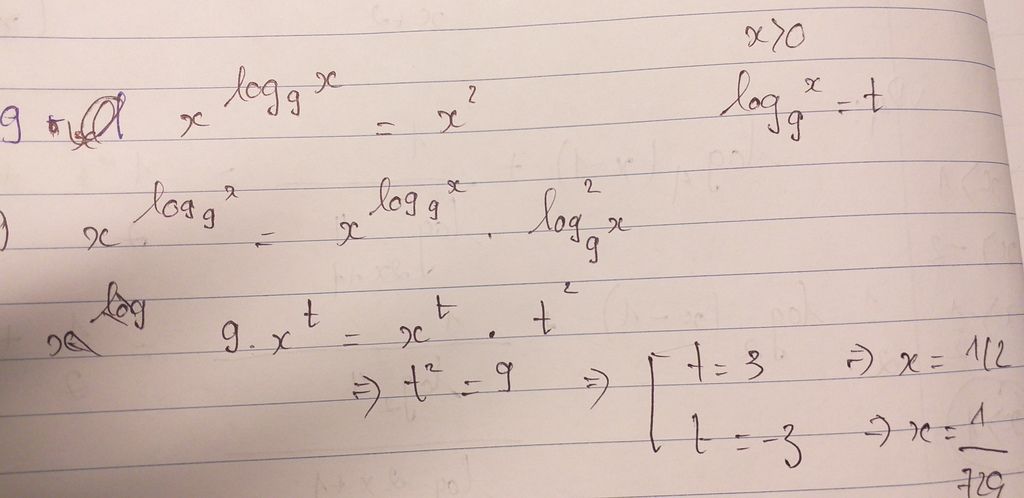 x>0
9 . x^{log_9 x} = x^2
log_9 x = t
x^{log_9 x} = x^{log_9 x} . log_9^2 x
log 9 . x^t = x^t . t^2
=> t^2 = 9 => [ t = 3 => x = 1/2
t = -3 => x = 1/729